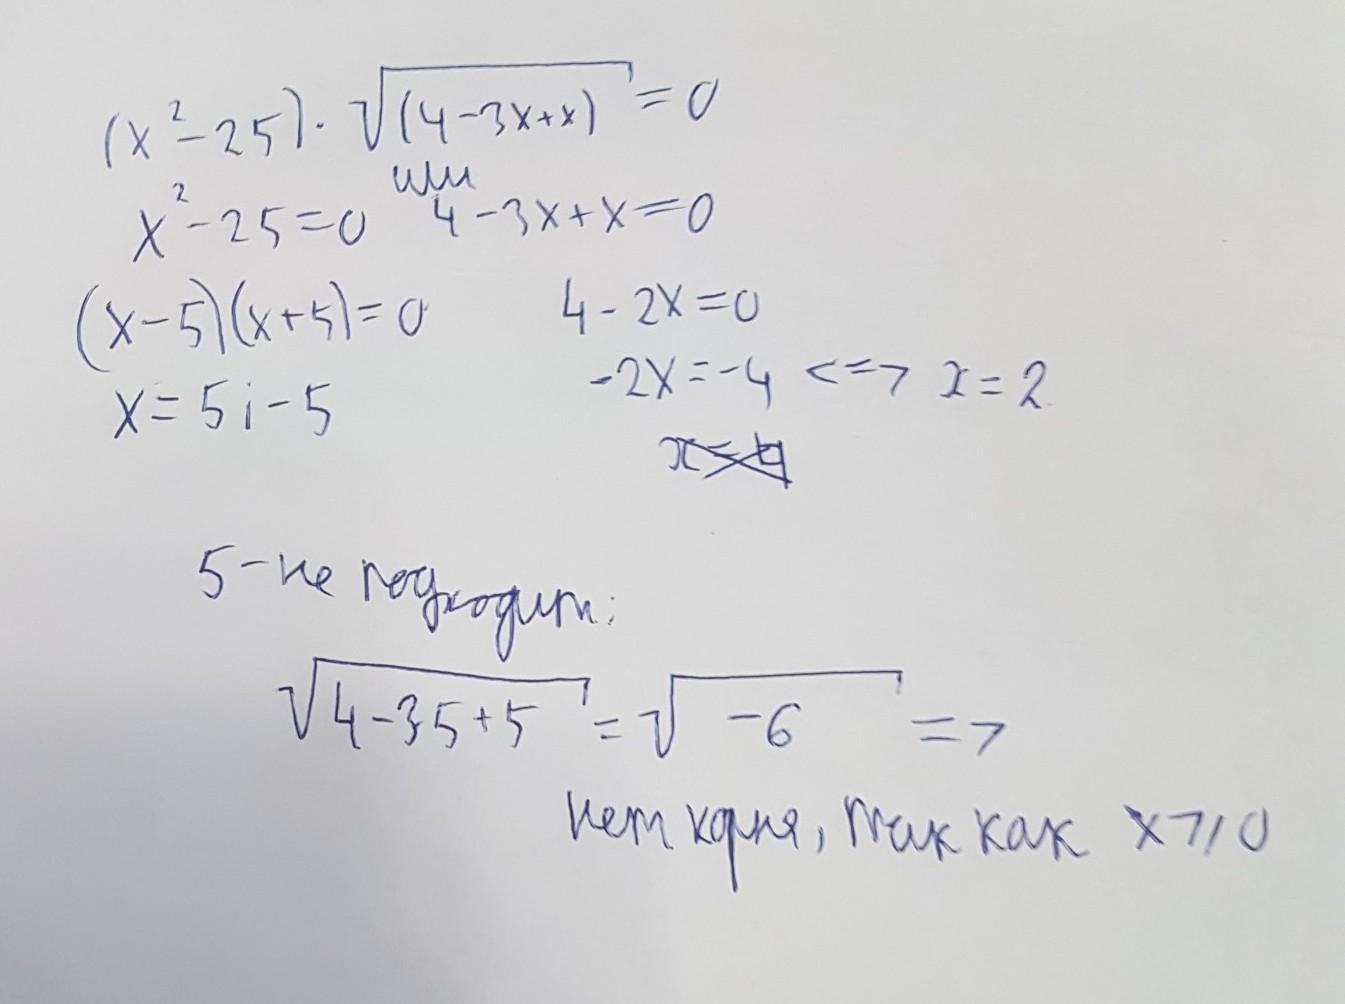 (x²-25)·√(4-3x+x) = 0
x²-25=0 или 4-3x+x=0
(x-5)(x+5)=0 4-2x=0
x=5;-5 -2x=-4 <=> x=2
5-не подходит:
√4-35+5 = √-6 =>
нет корня, так как x⩾0